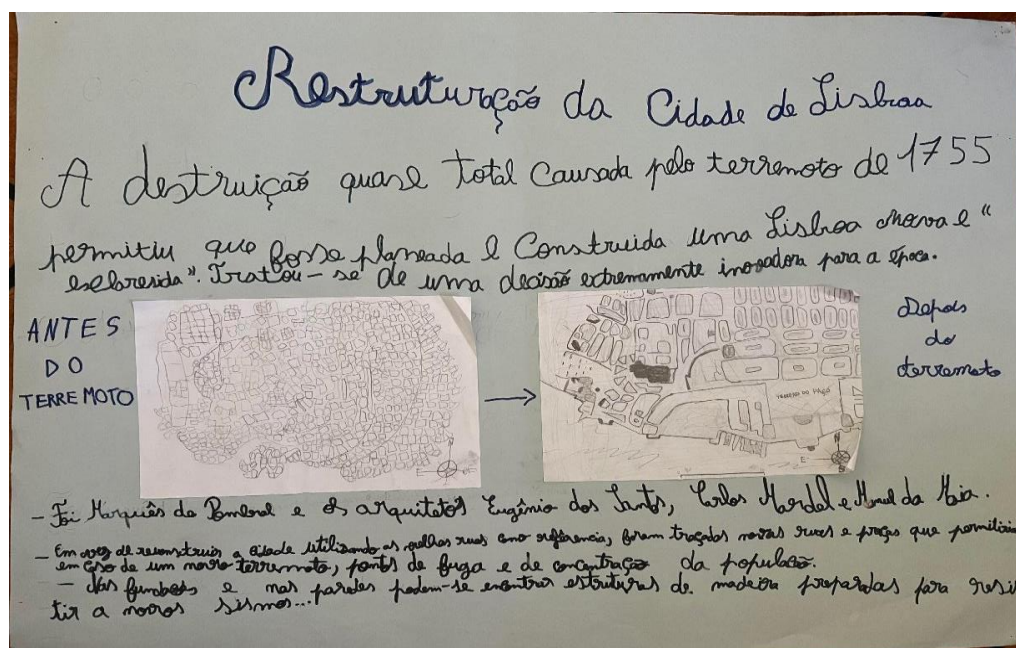 Restruturação da Cidade de Lisboa
A destruição quase total causada pelo terremoto de 1755
permitiu que fosse planeada e Construida uma Lisboa nova e "
esclaresida". Tratou-se de uma decisão extremamente inovadora para a época.
ANTES
DO
TERREMOTO
TERREIRO DO PAÇO
E
Depois
do
terremoto
- Foi Marquês de Pombal e os arquitetos Eugénio dos Santos, Carlos Mardel e Manuel da Maia.
- Em vez de reconstruir a cidade utilizando as velhas ruas como referencia, foram traçados novas ruas e praças que permitiria
em caso de um novo terremoto, pontos de fuga e de concentração da população.
- Nas e nas paredes podem-se encontrar estruturas de madeira preparadas para resi
tir a novos sismos...